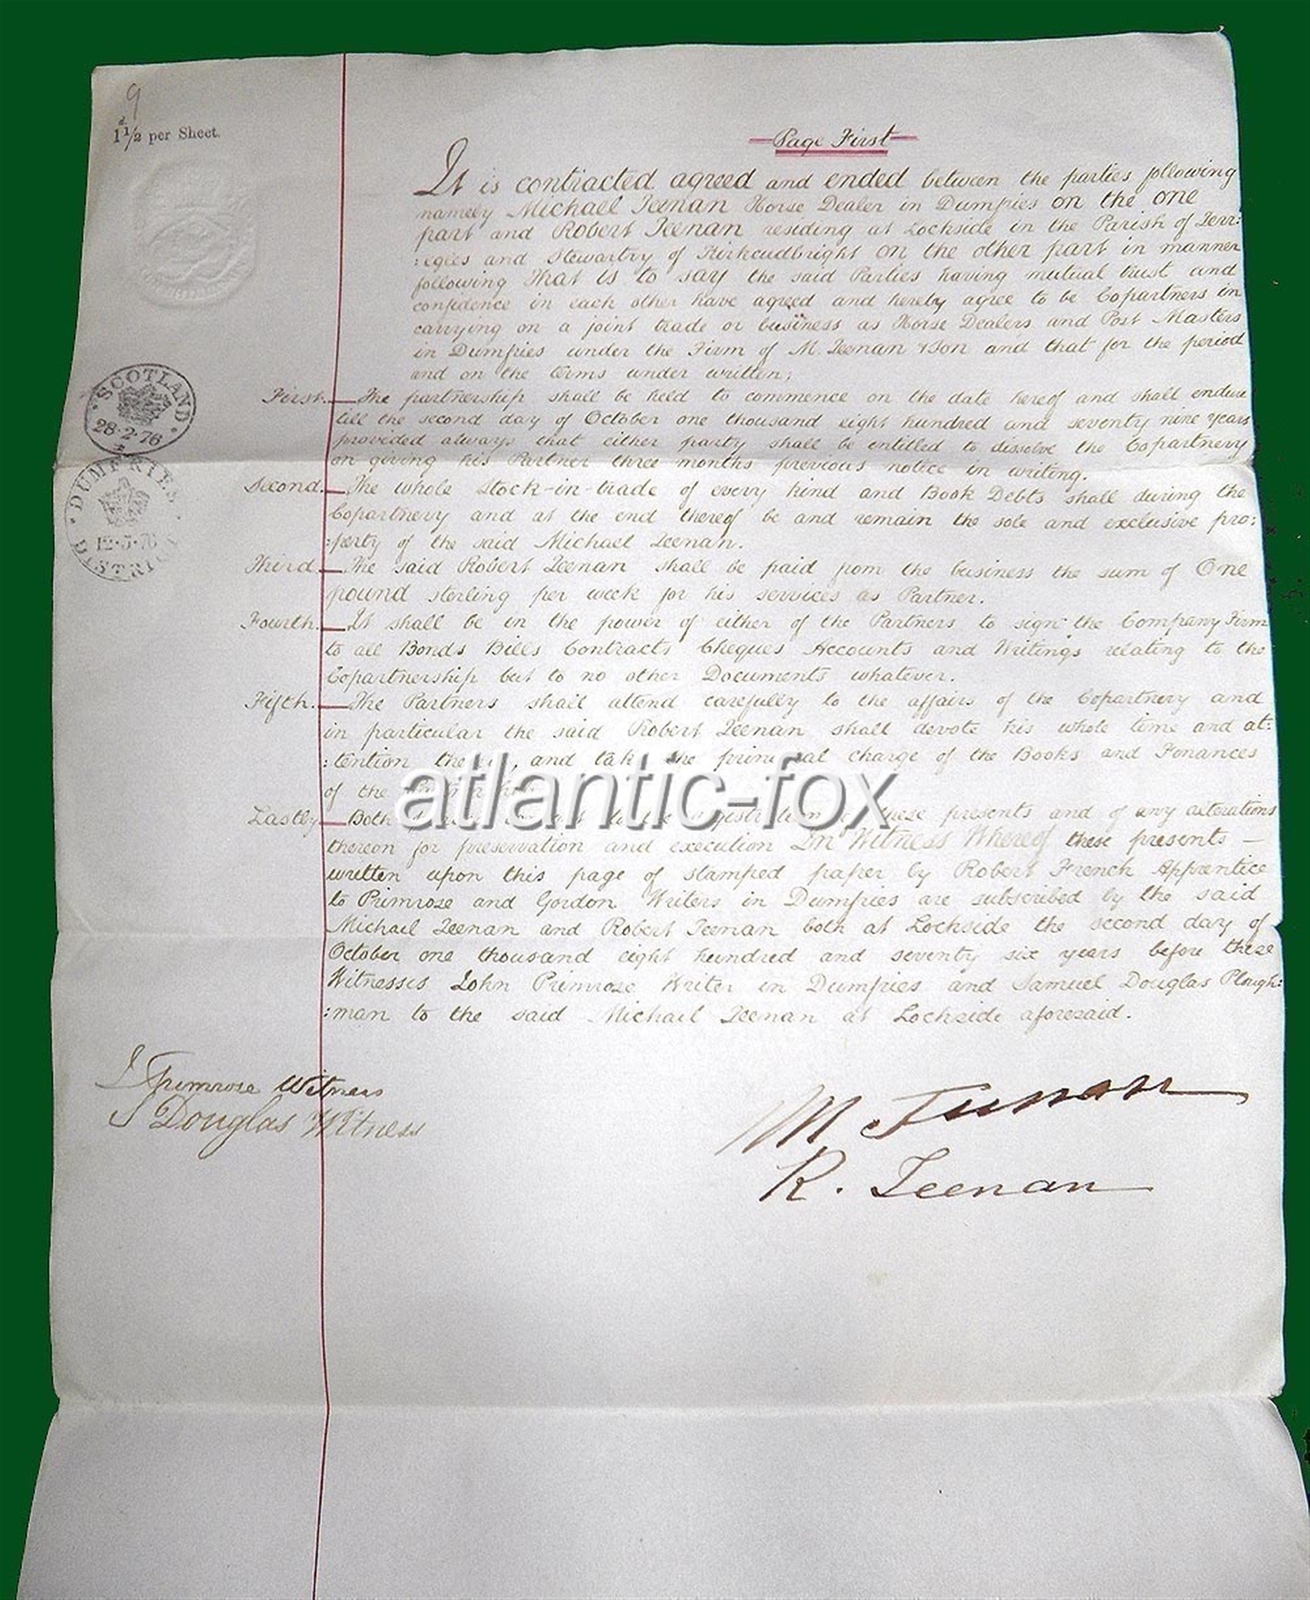 9
1½d per Sheet.
Page First
It is contracted agreed and ended between the parties following
namely Michael Teenan Horse Dealer in Dumfries on the one
part and Robert Teenan residing at Lochside in the Parish of Terr:
:egles and Stewartry of Kirkcudbright on the other part in manner
following That is to say the said Parties having mutual trust and
confidence in each other have agreed and hereby agree to be Copartners in
carrying on a joint trade or business as Horse Dealers and Post Masters
in Dumfries under the Firm of M. Teenan & Son and that for the period
and on the terms under written;
First. The partnership shall be held to commence on the date hereof and shall endure
till the second day of October one thousand eight hundred and seventy nine years
provided always that either party shall be entitled to dissolve the Copartnery
on giving his Partner three months previous notice in writing.
Second. The whole Stock-in-trade of every kind and Book Debts shall during the
Copartnery and at the end thereof be and remain the sole and exclusive pro:
:perty of the said Michael Teenan.
Third The said Robert Teenan shall be paid from the business the sum of One
pound sterling per week for his services as Partner.
Fourth. It shall be in the power of either of the Partners to sign the Company Firm
to all Bonds Bills Contracts Cheques Accounts and Writings relating to the
Copartnership but to no other Documents whatever.
Fifth. The Partners shall attend carefully to the affairs of the Copartnery and
in particular the said Robert Teenan shall devote his whole time and at:
:tention and take the principal charge of the Books and Finances
of the
Lastly Both these presents and of any alterations
thereon for preservation and execution In Witness Whereof these presents
written upon this page of stamped paper by Robert French Apprentice
to Primrose and Gordon Writers in Dumfries are subscribed by the said
Michael Teenan and Robert Teenan both at Lochside the second day of
October one thousand eight hundred and seventy six years before these
Witnesses John Primrose Writer in Dumfries and Samuel Douglas Plough:
:man to the said Michael Teenan at Lochside aforesaid.
J Primrose Witness
S Douglas Witness
M Teenan
R. Teenan
SCOTLAND
28·2·76
DUMFRIES
DISTRICT
atlantic-fox